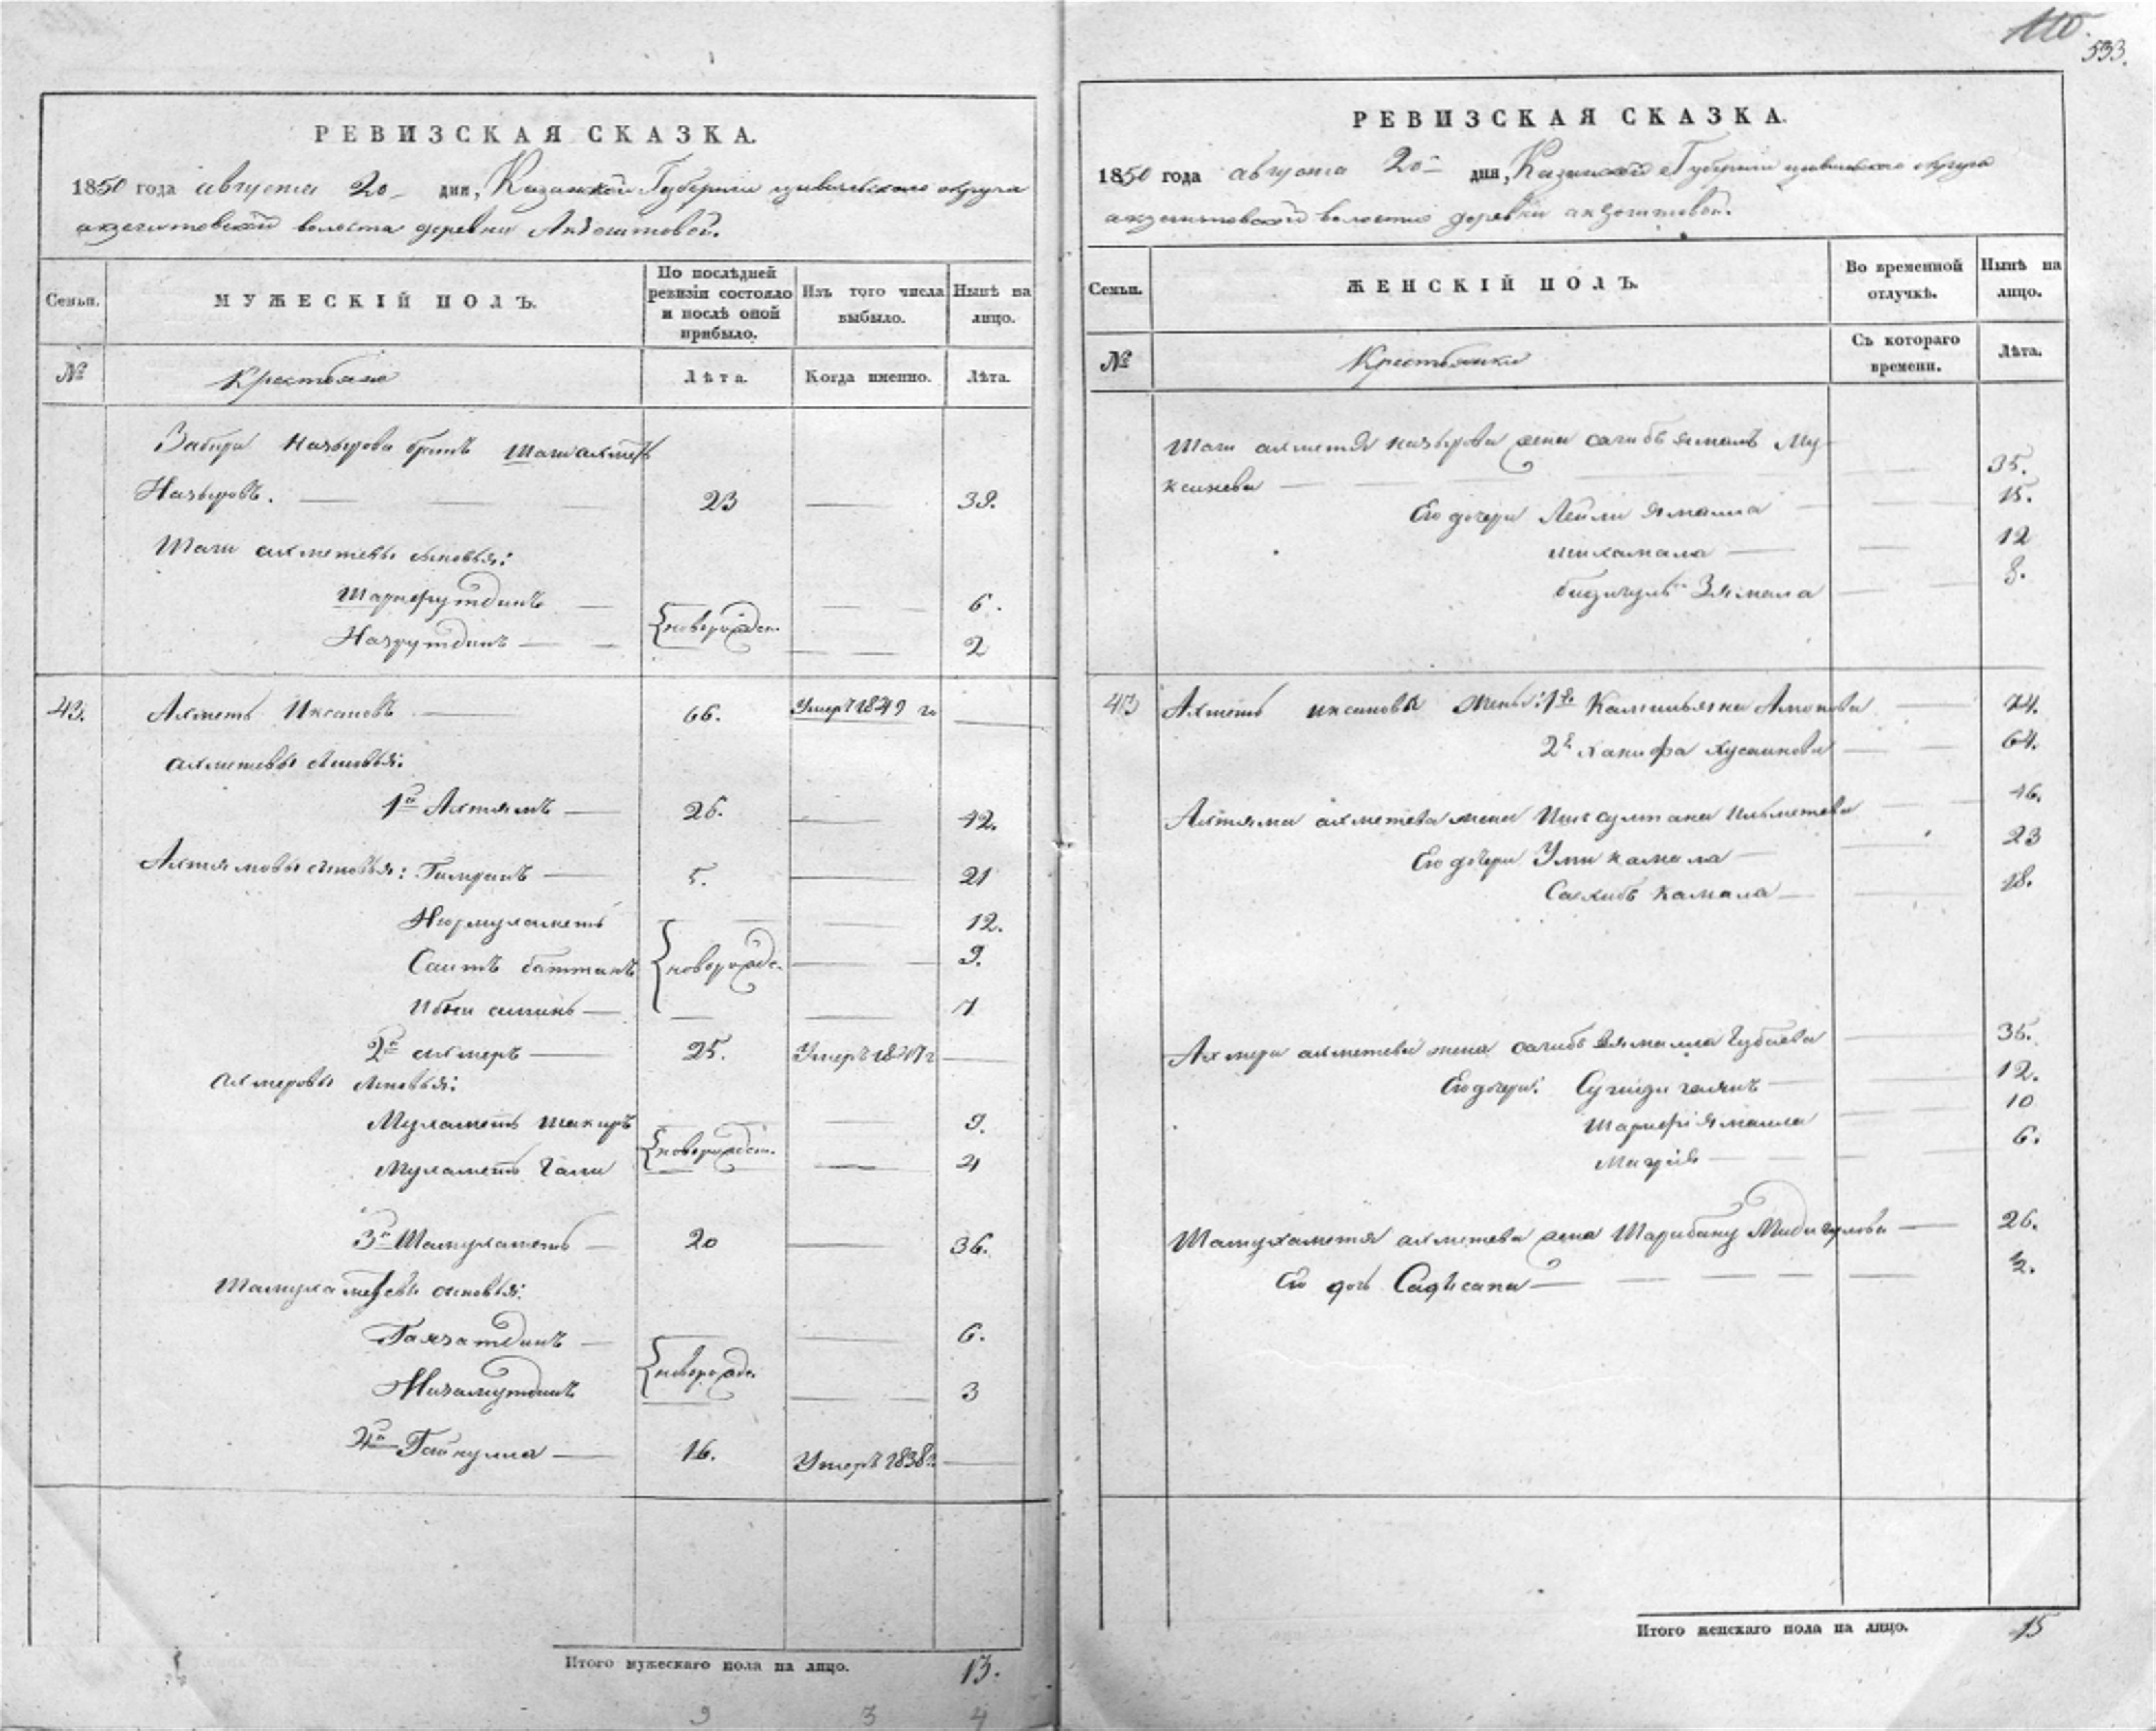 533.
РЕВИЗСКАЯ СКАЗКА.
1850 года августа 20 дня, Казанской Губернии цивильскаго округа
волости деревни
Семьи.
МУЖЕСКІЙ ПОЛЪ.
По послѣдней ревизіи состояло и послѣ оной прибыло.
Изъ того числа выбыло.
Нынѣ на лицо.
№
Крестьяне
Лѣта.
Когда именно.
Лѣта.
Забира Назырова братъ Шагиахметъ
Назыровъ. 23 39.
Шаги ахметевы сыновья:
Шарифутдинъ 6.
новорожден.
Назрутдинъ 2
43. Ахметь Иксановъ 66. Умеръ 1849 го
ахметевы сыновья:
1й Ахтямъ 26. 42.
Ахтямовы сыновья: Гимранъ 5. 21
Нюрмухаметь 12.
Саитъ баттанъ новорожде. 9.
Ибни аминь 1
2й ахмеръ 25. Умеръ 1847 г
ахмеровы сыновья:
Мухаметь шакиръ 9.
новорожден.
Мухаметь Гали 4
3й Шамухаметь 20 36.
Шамухаметевы сыновья:
Гаязатдинъ 6.
новорожде.
Низамутдинъ 3
4й Гайнулла 16. Умеръ 1838 г.
Итого мужескаго пола на лицо. 13.
9 3 4
РЕВИЗСКАЯ СКАЗКА.
1850 года августа 20 дня, Казанской Губернии цивильскаго округа
волости деревни
Семьи.
ЖЕНСКІЙ ПОЛЪ.
Во временной отлучкѣ.
Нынѣ на лицо.
№
Крестьянки
Съ котораго времени.
Лѣта.
Шаги ахметя назырова жена сагибь ямалъ Му-
ксинева 35.
Его дочери Лейли ямалла 15.
шихамала 12
8.
43 Ахметь иксанова жены: 1я Камильяна 74.
2я ханифа хусаинова 64.
Ахтяма ахметева жена 46.
Его дочери Умы камала 23
Сахибь камала 18.
Ахмера ахметева жена сагибь ямалла Губаева 35.
Его дочери: 12.
Шарифіямалла 10
6.
Шамухаметя ахметева жена Шарибану 26.
Его дочь 3.
Итого женскаго пола на лицо. 15